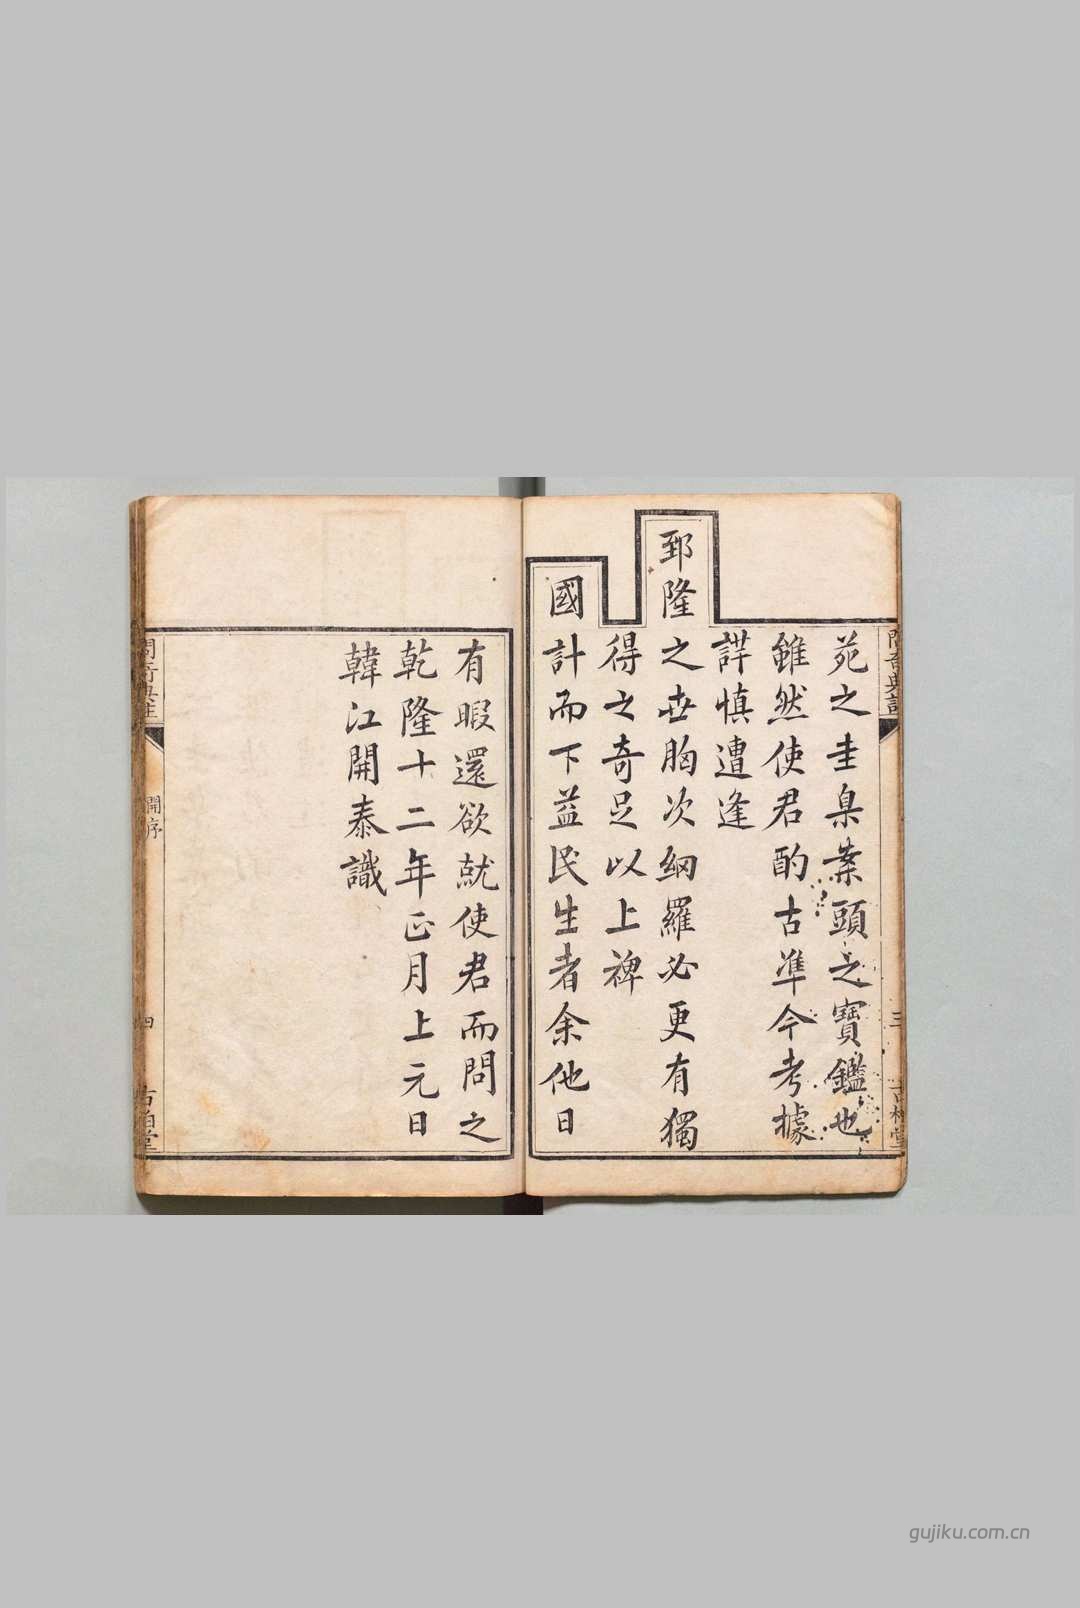 苑之圭臬案頭之寶鑑也
雖然使君酌古準今考據
詳慎遭逢
郅隆之世胸次網羅必更有獨
得之奇足以上裨
國計而下益民生者余他日
有暇還欲就使君而問之
乾隆十二年正月上元日
韓江開泰識
開序
四
三
gujiku.com.cn